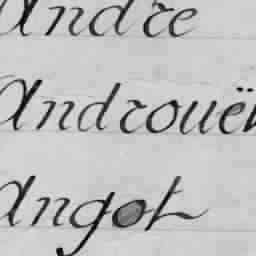 André
Androuë
Angot